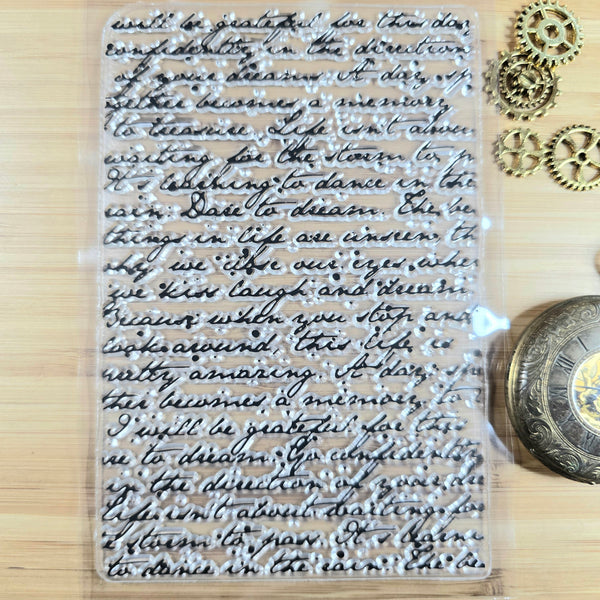 will be grateful for this day
confidently in the direction
of your dreams. A day sp
gether becomes a memory
to treasure. Life isn't about
waiting for the storm to p
It's learning to dance in the
rain. Dare to dream. The be
things in life are unseen, th
why we close our eyes when
we kiss laugh and dream
Because when you stop and
look around, this life is
pretty amazing. A day spe
ther becomes a memory to t
I will be grateful for this
re to dream. Go confidently
in the direction of your dre
Life isn't about waiting for
e storm to pass. It's learni
to dance in the rain. The be